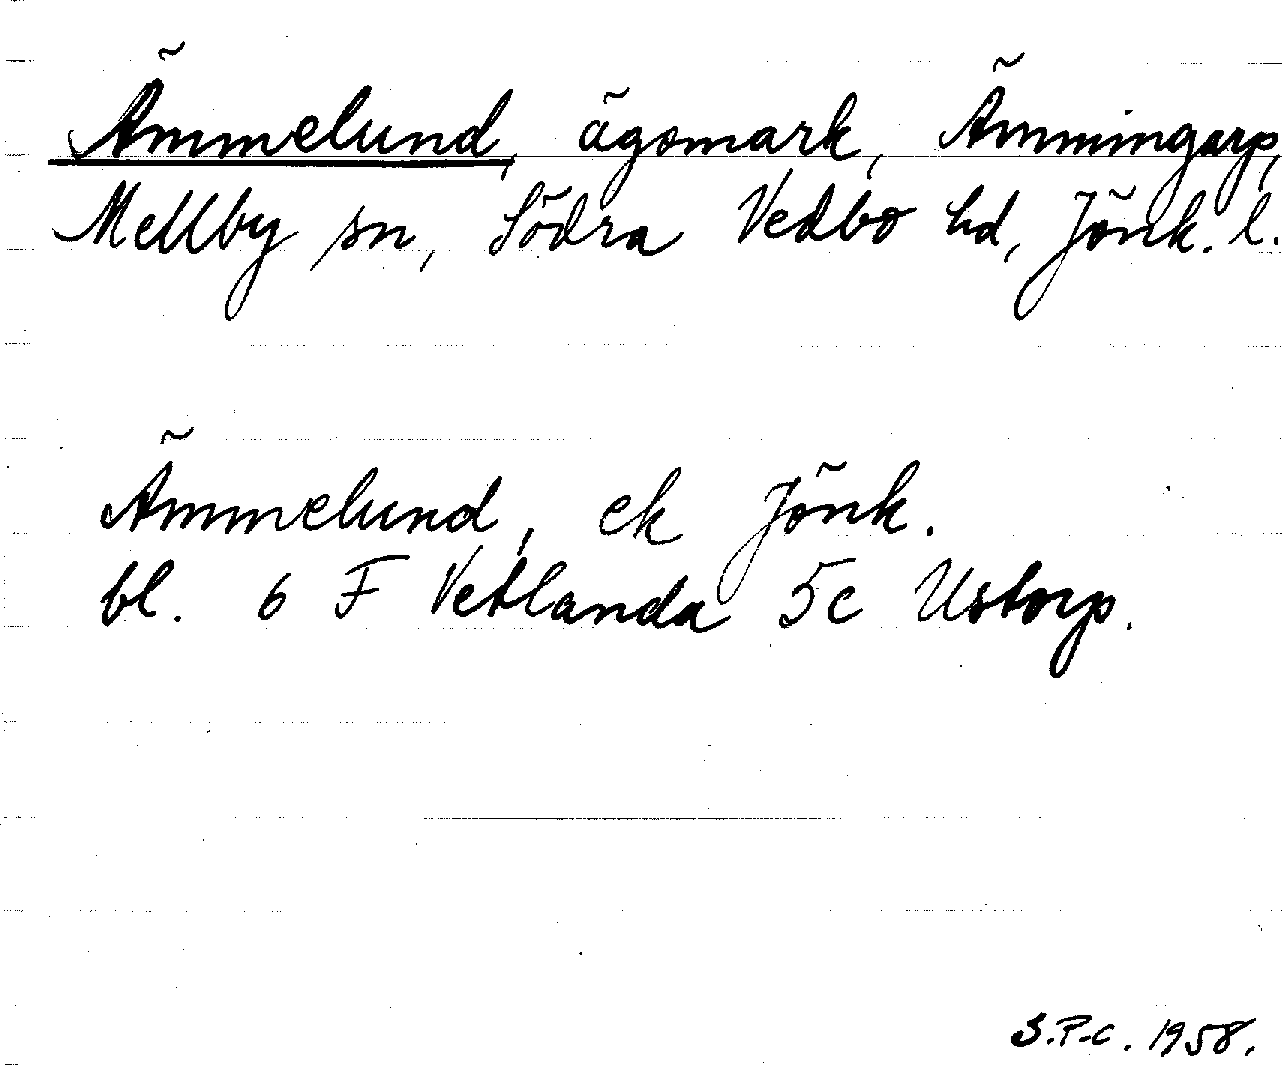 Ämmelund, ägomark, Ämmingarp,
Mellby sn, Södra Vedbo hd, Jönk. l.
Ämmelund, ek Jönk.
bl. 6 F Vetlanda 5c Ustorp.
S.P.C. 1958.